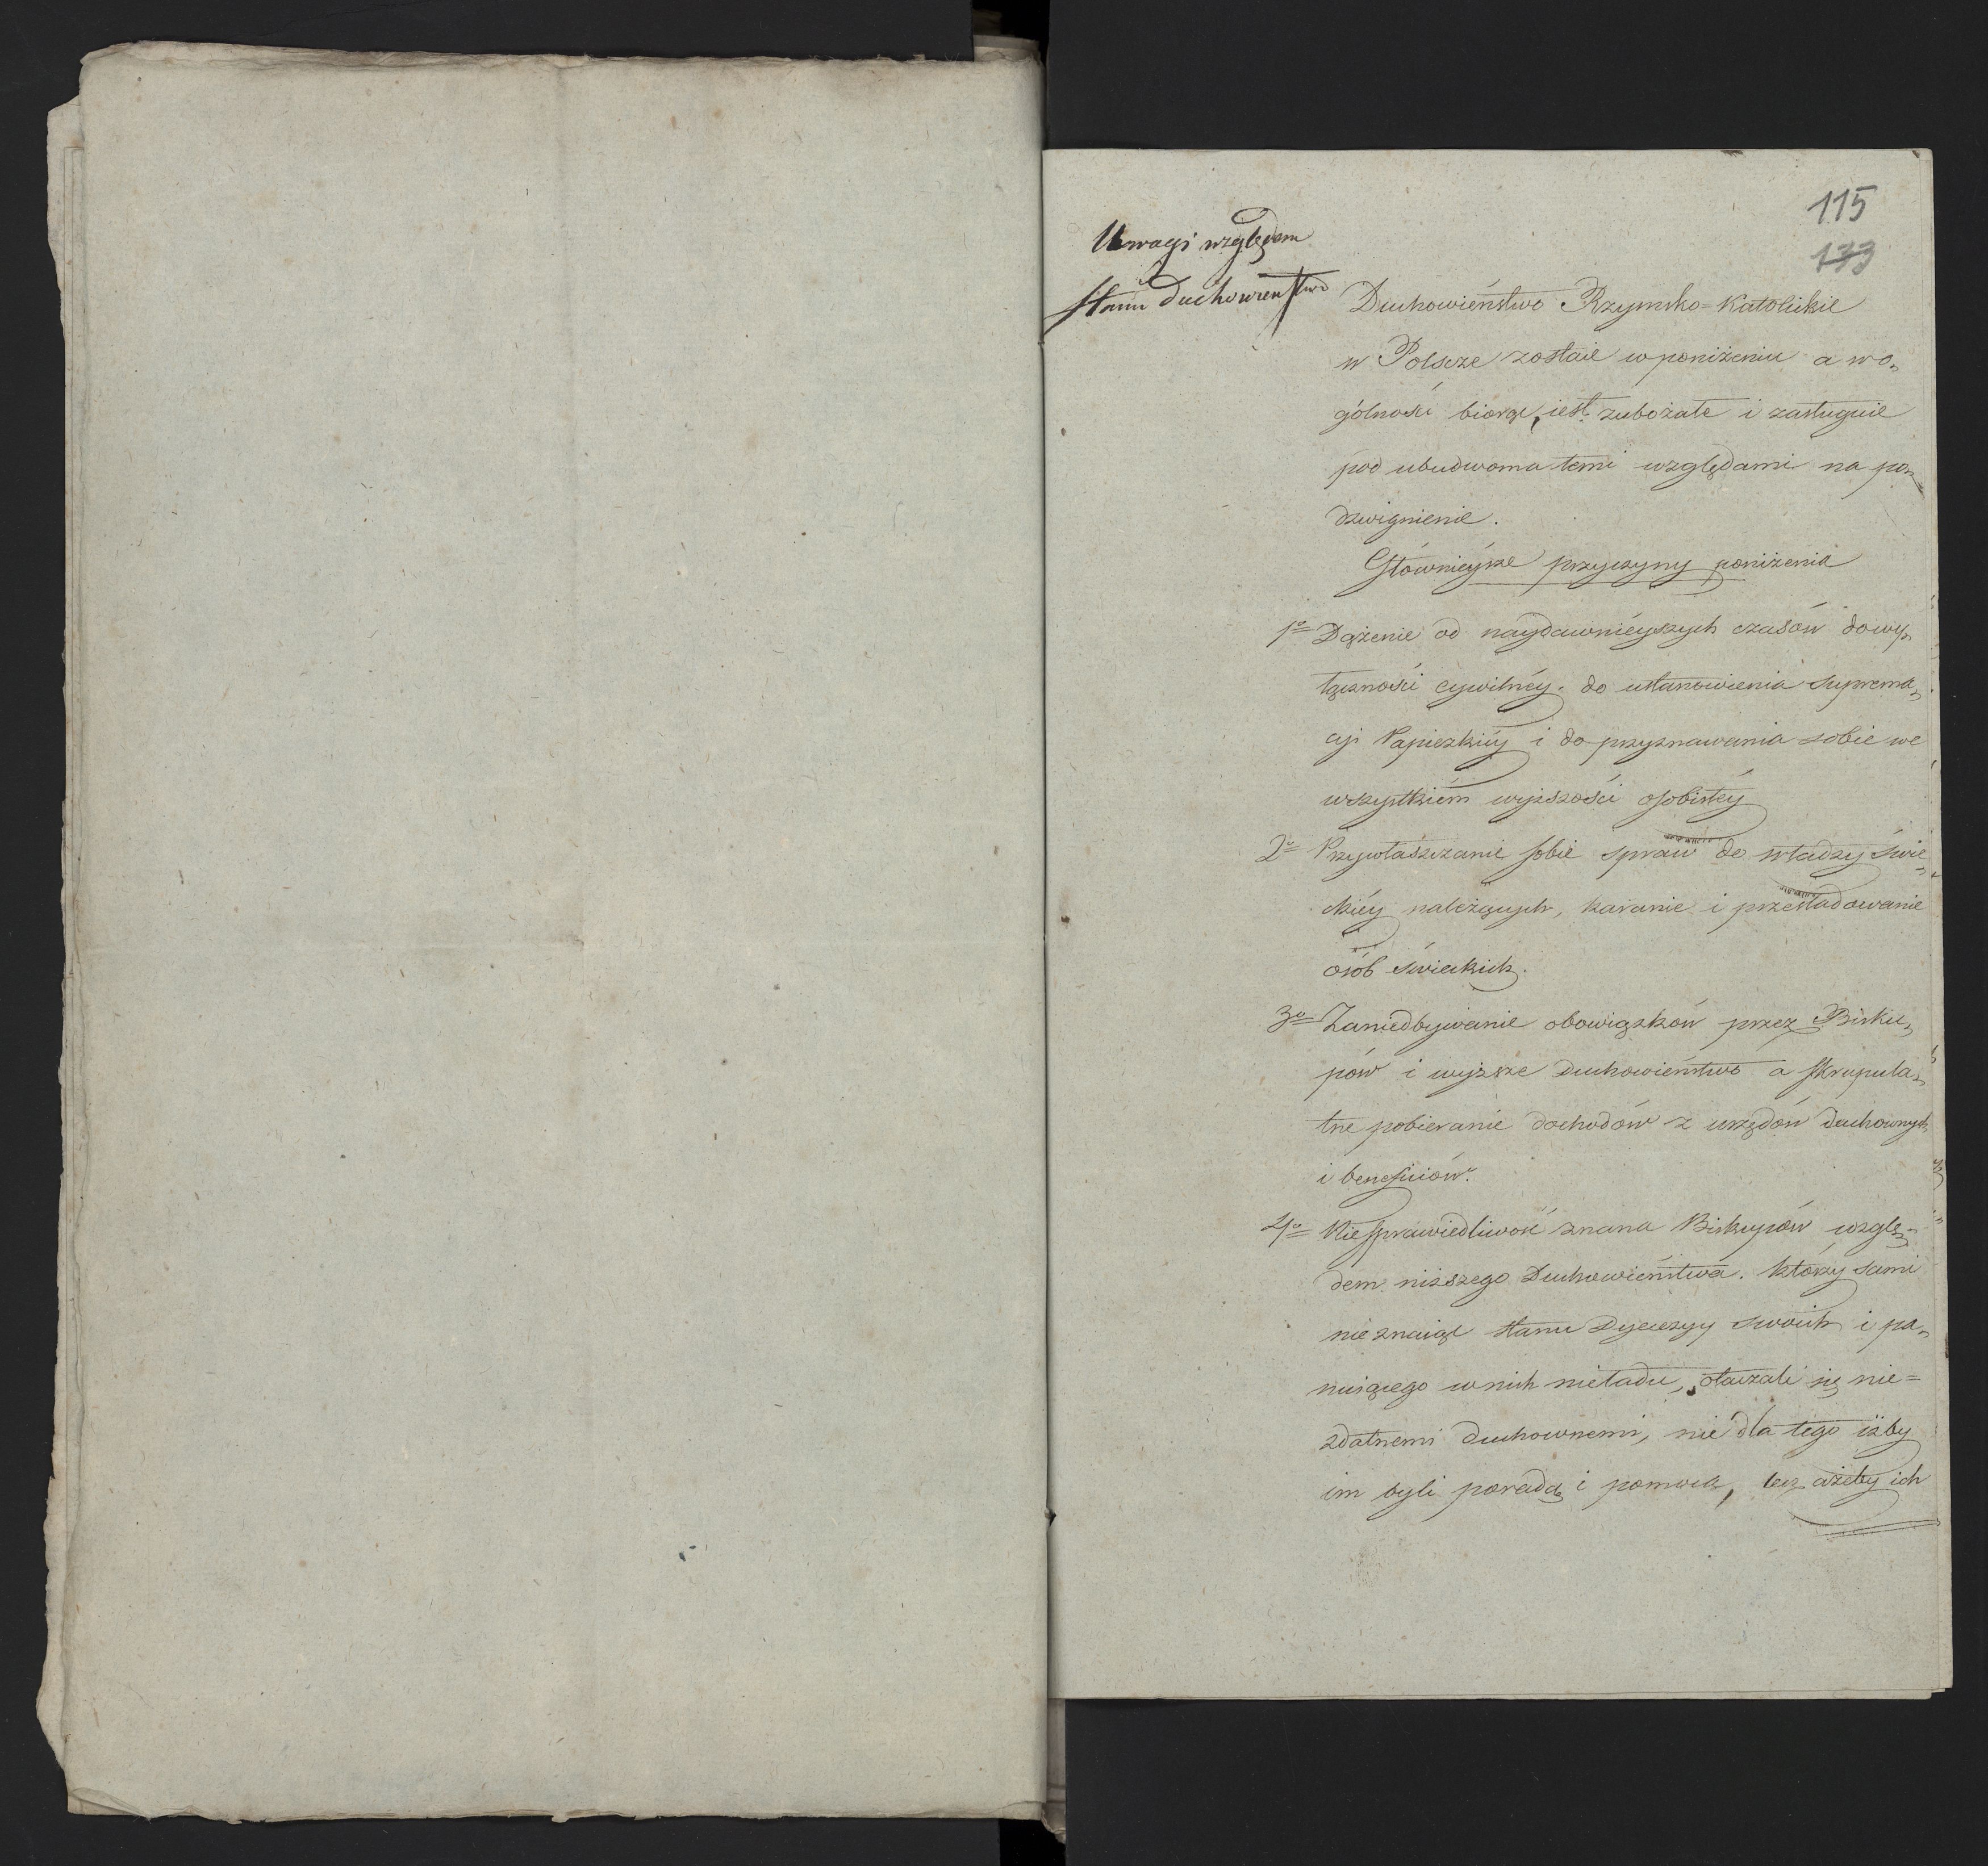 115
133
Uwagi względem
stanu Duchowieństwa
Duchowieństwo Rzymsko=Katolickie
w Polscze zostaie w poniżeniu a wo„
gólności biorąc, iest zubożałe i zasługuie
pod ubudwoma temi względami na po„
dzwignienie.
Główniéysze przyczyny poniżenia
1o Dążenie od naydawniéyszych czasów do wy„
łączności cywilnéy, do ustanowienia suprema„
cyi Papiezkiéy i do przyznawania sobie we
wszystkiém wyższości osobistéy
2o Przywłaszczanie sobie spraw do władzy świe„
ckiéy należących, karanie i prześladowanie
osób świeckich.
3o Zaniedbywanie obowiązków przez Bisku„
pów i wyższe Duchowieństwo a skrupula„
tne pobieranie dochodów z urzędów duchownych
i beneficiów.
4o Niesprawiedliwość znana Biskupów wzglę„
dem niższego Duchowieństwa. którzy sami
nie znaiąc stanu Dyecezyy swoich i pa„
nuiącego w nich nieładu, otaczali się nie=
zdatnemi duchownemi, nie dla tego iżby
im byli poradą i pomocą, lecz ażeby ich